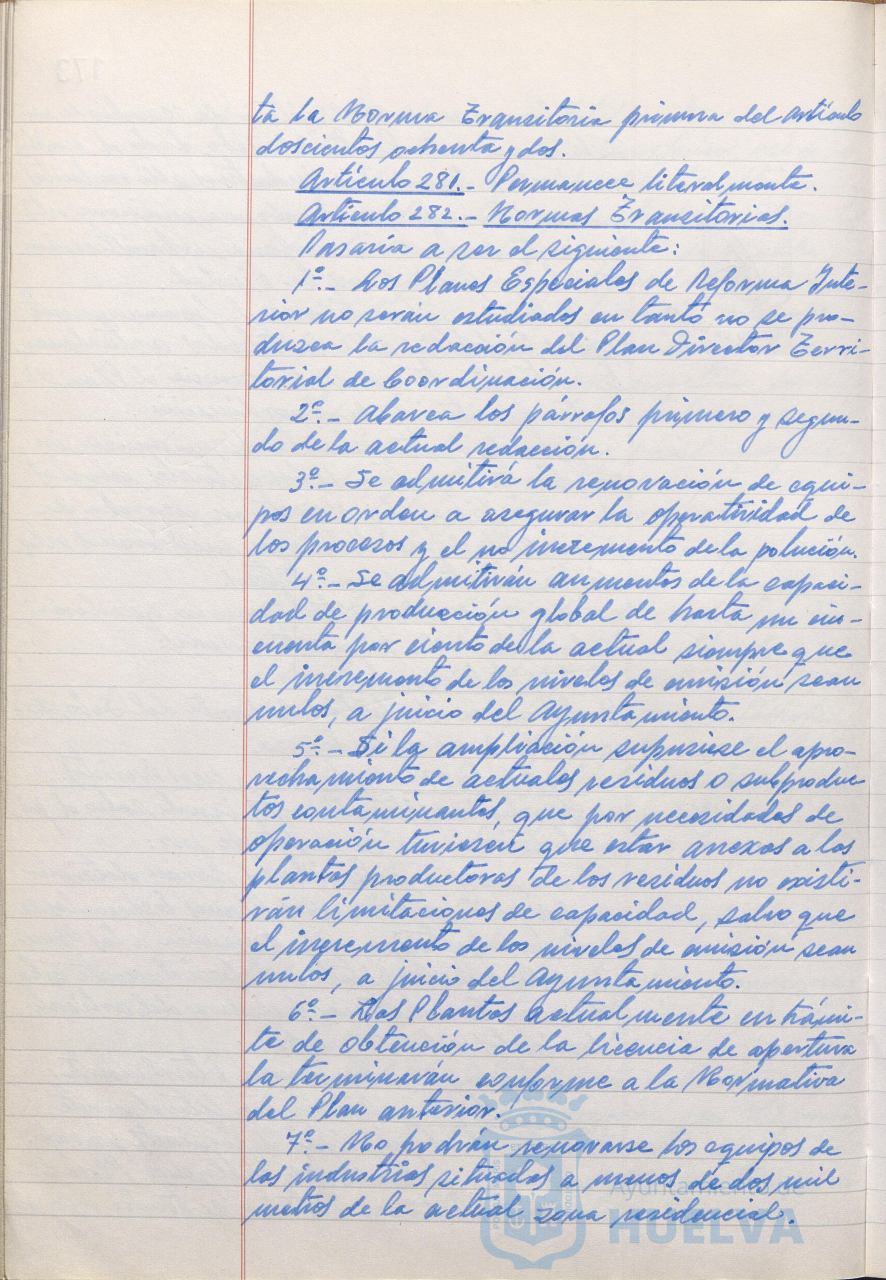 ta la Norma Transitoria primera del artículo
doscientos ochenta y dos.
Artículo 281.- Permanece literalmente.
Artículo 282.- Normas Transitorias.
Pasaría a ser el siguiente:
1ª.- Los Planes Especiales de Reforma Inte-
rior no serán estudiados en tantó no se pro-
duzca la redacción del Plan Director Terri-
torial de Coordinación.
2ª.- Abarca los párrafos primero y segun-
do de la actual redacción.
3ª.- Se admitirá la renovación de equi-
pos en orden a asegurar la operatividad de
los procesos y el no incremento de la polución.
4ª.- Se admitirán aumentos de la capaci-
dad de producción global de hasta un cin-
cuenta por ciento de la actual siempre que
el incremento de los niveles de emisión sean
nulos, a juicio del Ayuntamiento.
5ª.- Si la ampliación supusiese el apro-
vechamiento de actuales residuos o subproduc-
tos contaminantes, que por necesidades de
operación tuviesen que estar anexas a las
plantas productoras de los residuos no existi-
rán limitaciones de capacidad, salvo que
el incremento de los niveles de emisión sean
nulos, a juicio del Ayuntamiento.
6ª.- Las Plantas actualmente en trámi-
te de obtención de la licencia de apertura
la terminarán conforme a la Normativa
del Plan anterior.
7ª.- No podrán renovarse los equipos de
las industrias situadas a menos de dos mil
metros de la actual zona residencial.
Ayuntamiento de
HUELVA